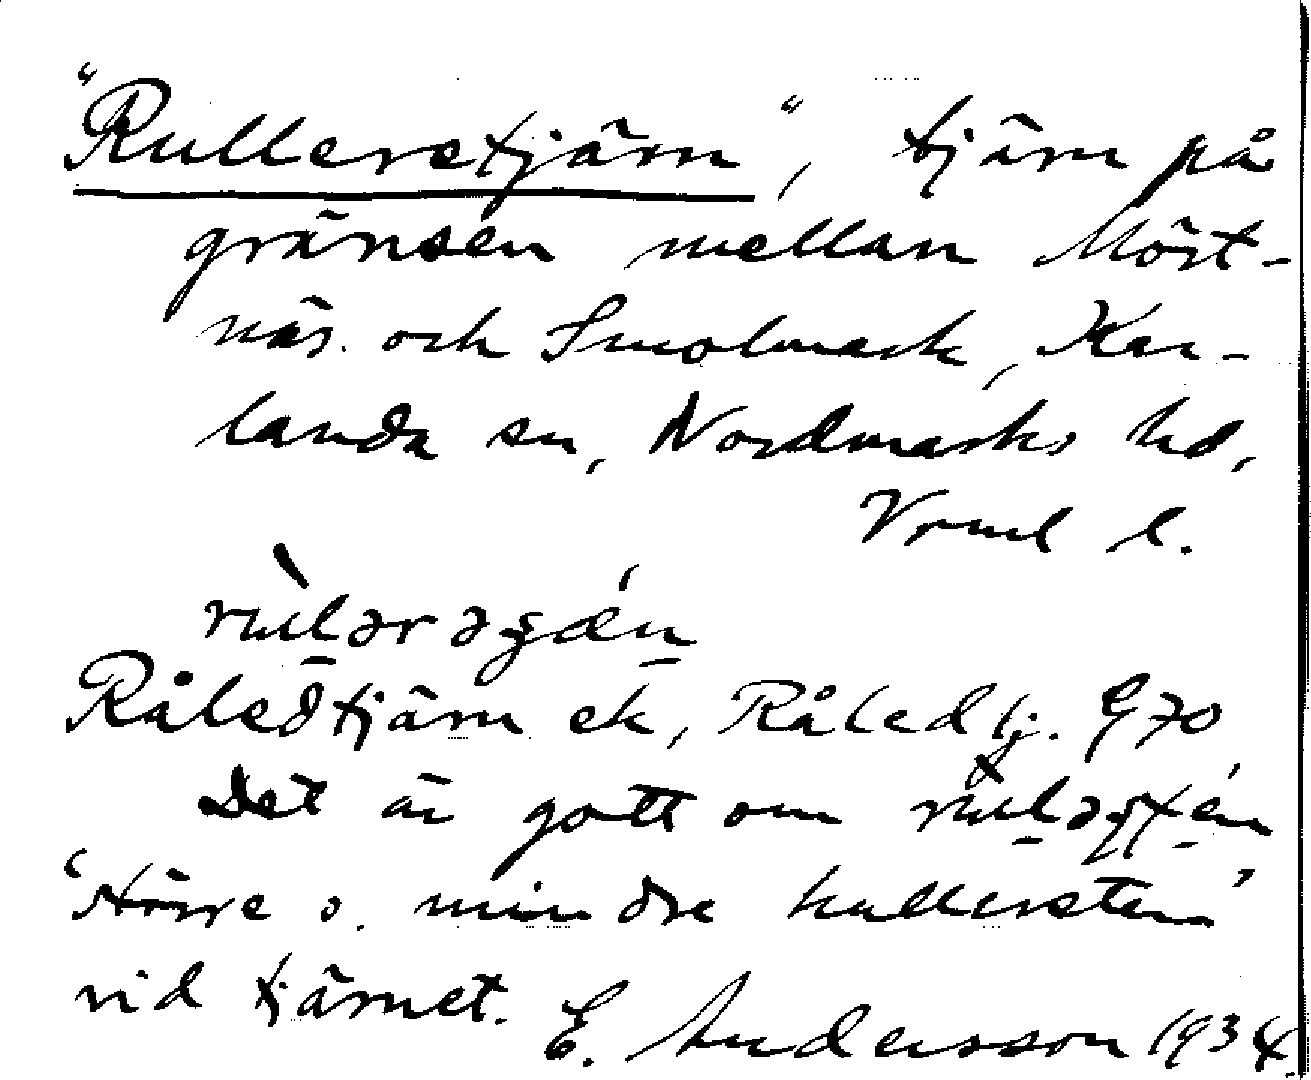 "Rullerstjärn", tjärn på
gränsen mellan Mört-
näs och Smolmark, Kar-
landa sn, Nordmarks hd,
Vrml l.
Råledstjärn ek, Råledtj. G70
Det är gott om
'större o. mindre kullerstenar'
vid tjärnet. E. Andersson 1934